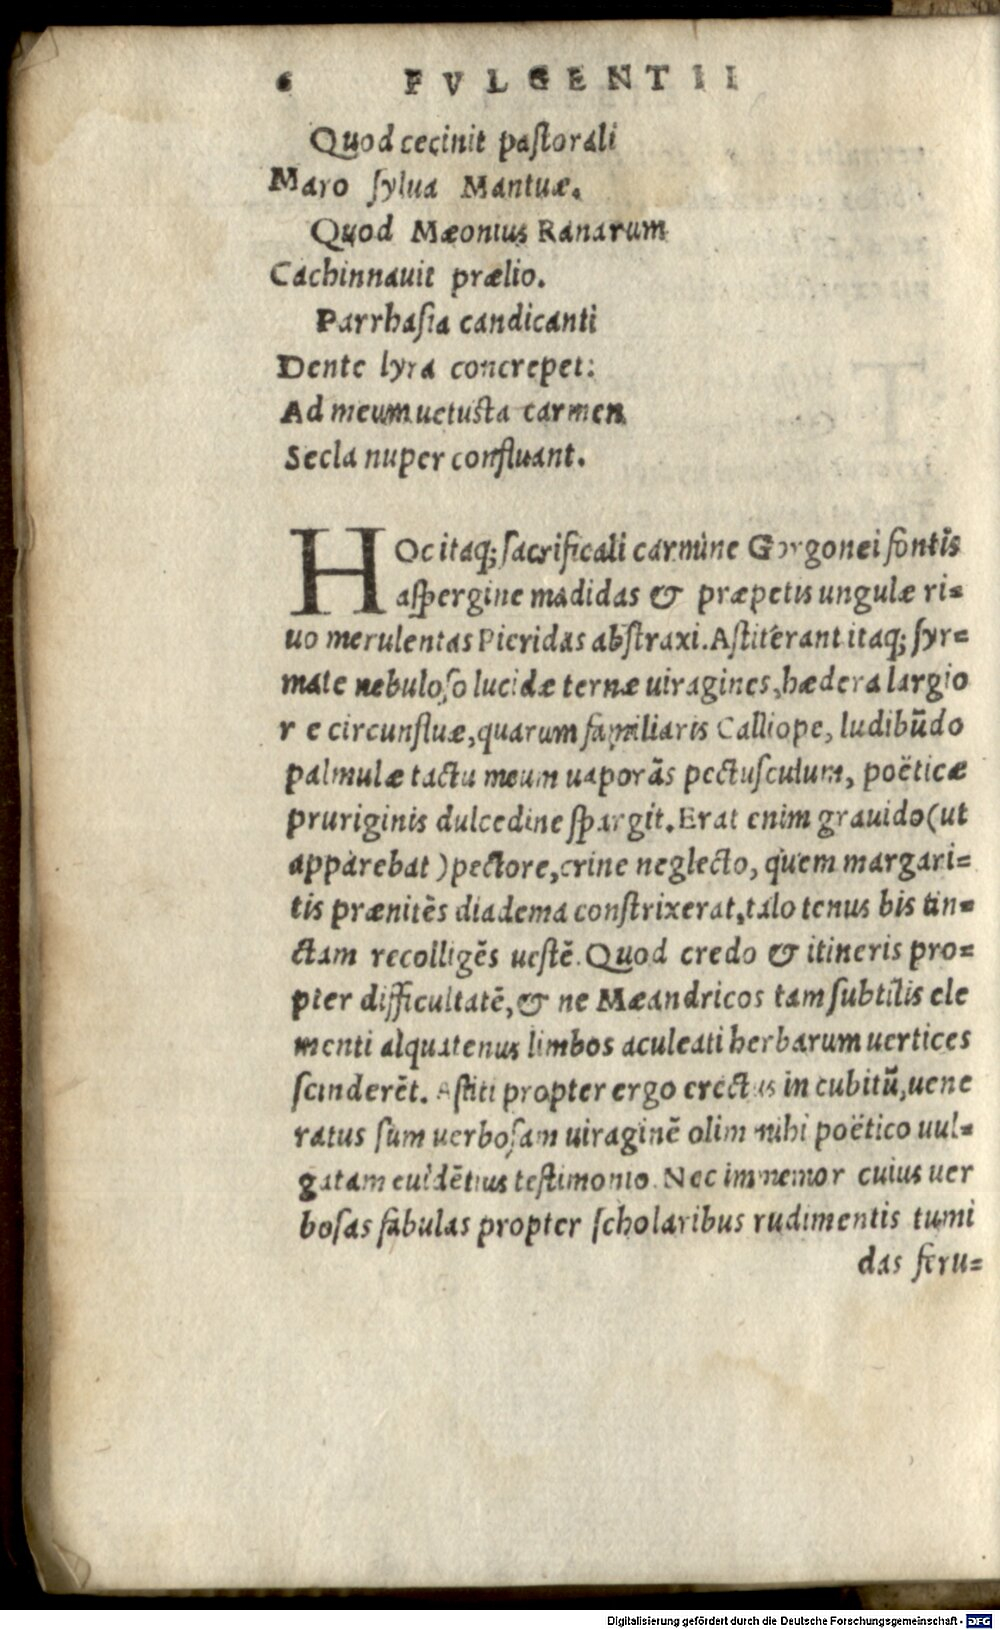 6 FVLGENTII
Quod cecinit paſtorali
Maro ſylua Mantuæ.
Quod Mæonius Ranarum
Cachinnauit prælio.
Parrhaſia candicanti
Dente lyra concrepet:
Ad meum uetuſta carmen
Secla nuper confluant.
HOc itaq; ſacrificali carmine Gorgonei fontis
aſpergine madidas & præpetis ungulæ ri=
uo merulentas Pieridas abſtraxi. Aſtiterant itaq; ſyr=
mate nebuloſo lucidæ ternæ uiragines, hædera largio
r e circunfluæ, quarum familiaris Calliope, ludibūdo
palmulæ tactu meum uaporās pectuſculum, poëticæ
pruriginis dulcedine ſpargit. Erat enim grauido (ut
apparebat) pectore, crine neglecto, quem margari=
tis prænitēs diadema conſtrixerat, talo tenus bis tin=
ctam recolligēs ueſtē. Quod credo & itineris pro=
pter difficultatē, & ne Mæandricos tam ſubtilis ele
menti alquatenus limbos aculeati herbarum uertices
ſcinderēt. Aſtiti propter ergo erectus in cubitū, uene
ratus ſum uerboſam uiraginē olim mihi poëtico uul=
gatam euidētius teſtimonio. Nec immemor cuius uer
boſas fabulas propter ſcholaribus rudimentis tumi
das feru=
Digitalisierung gefördert durch die Deutsche Forschungsgemeinschaft - DFG